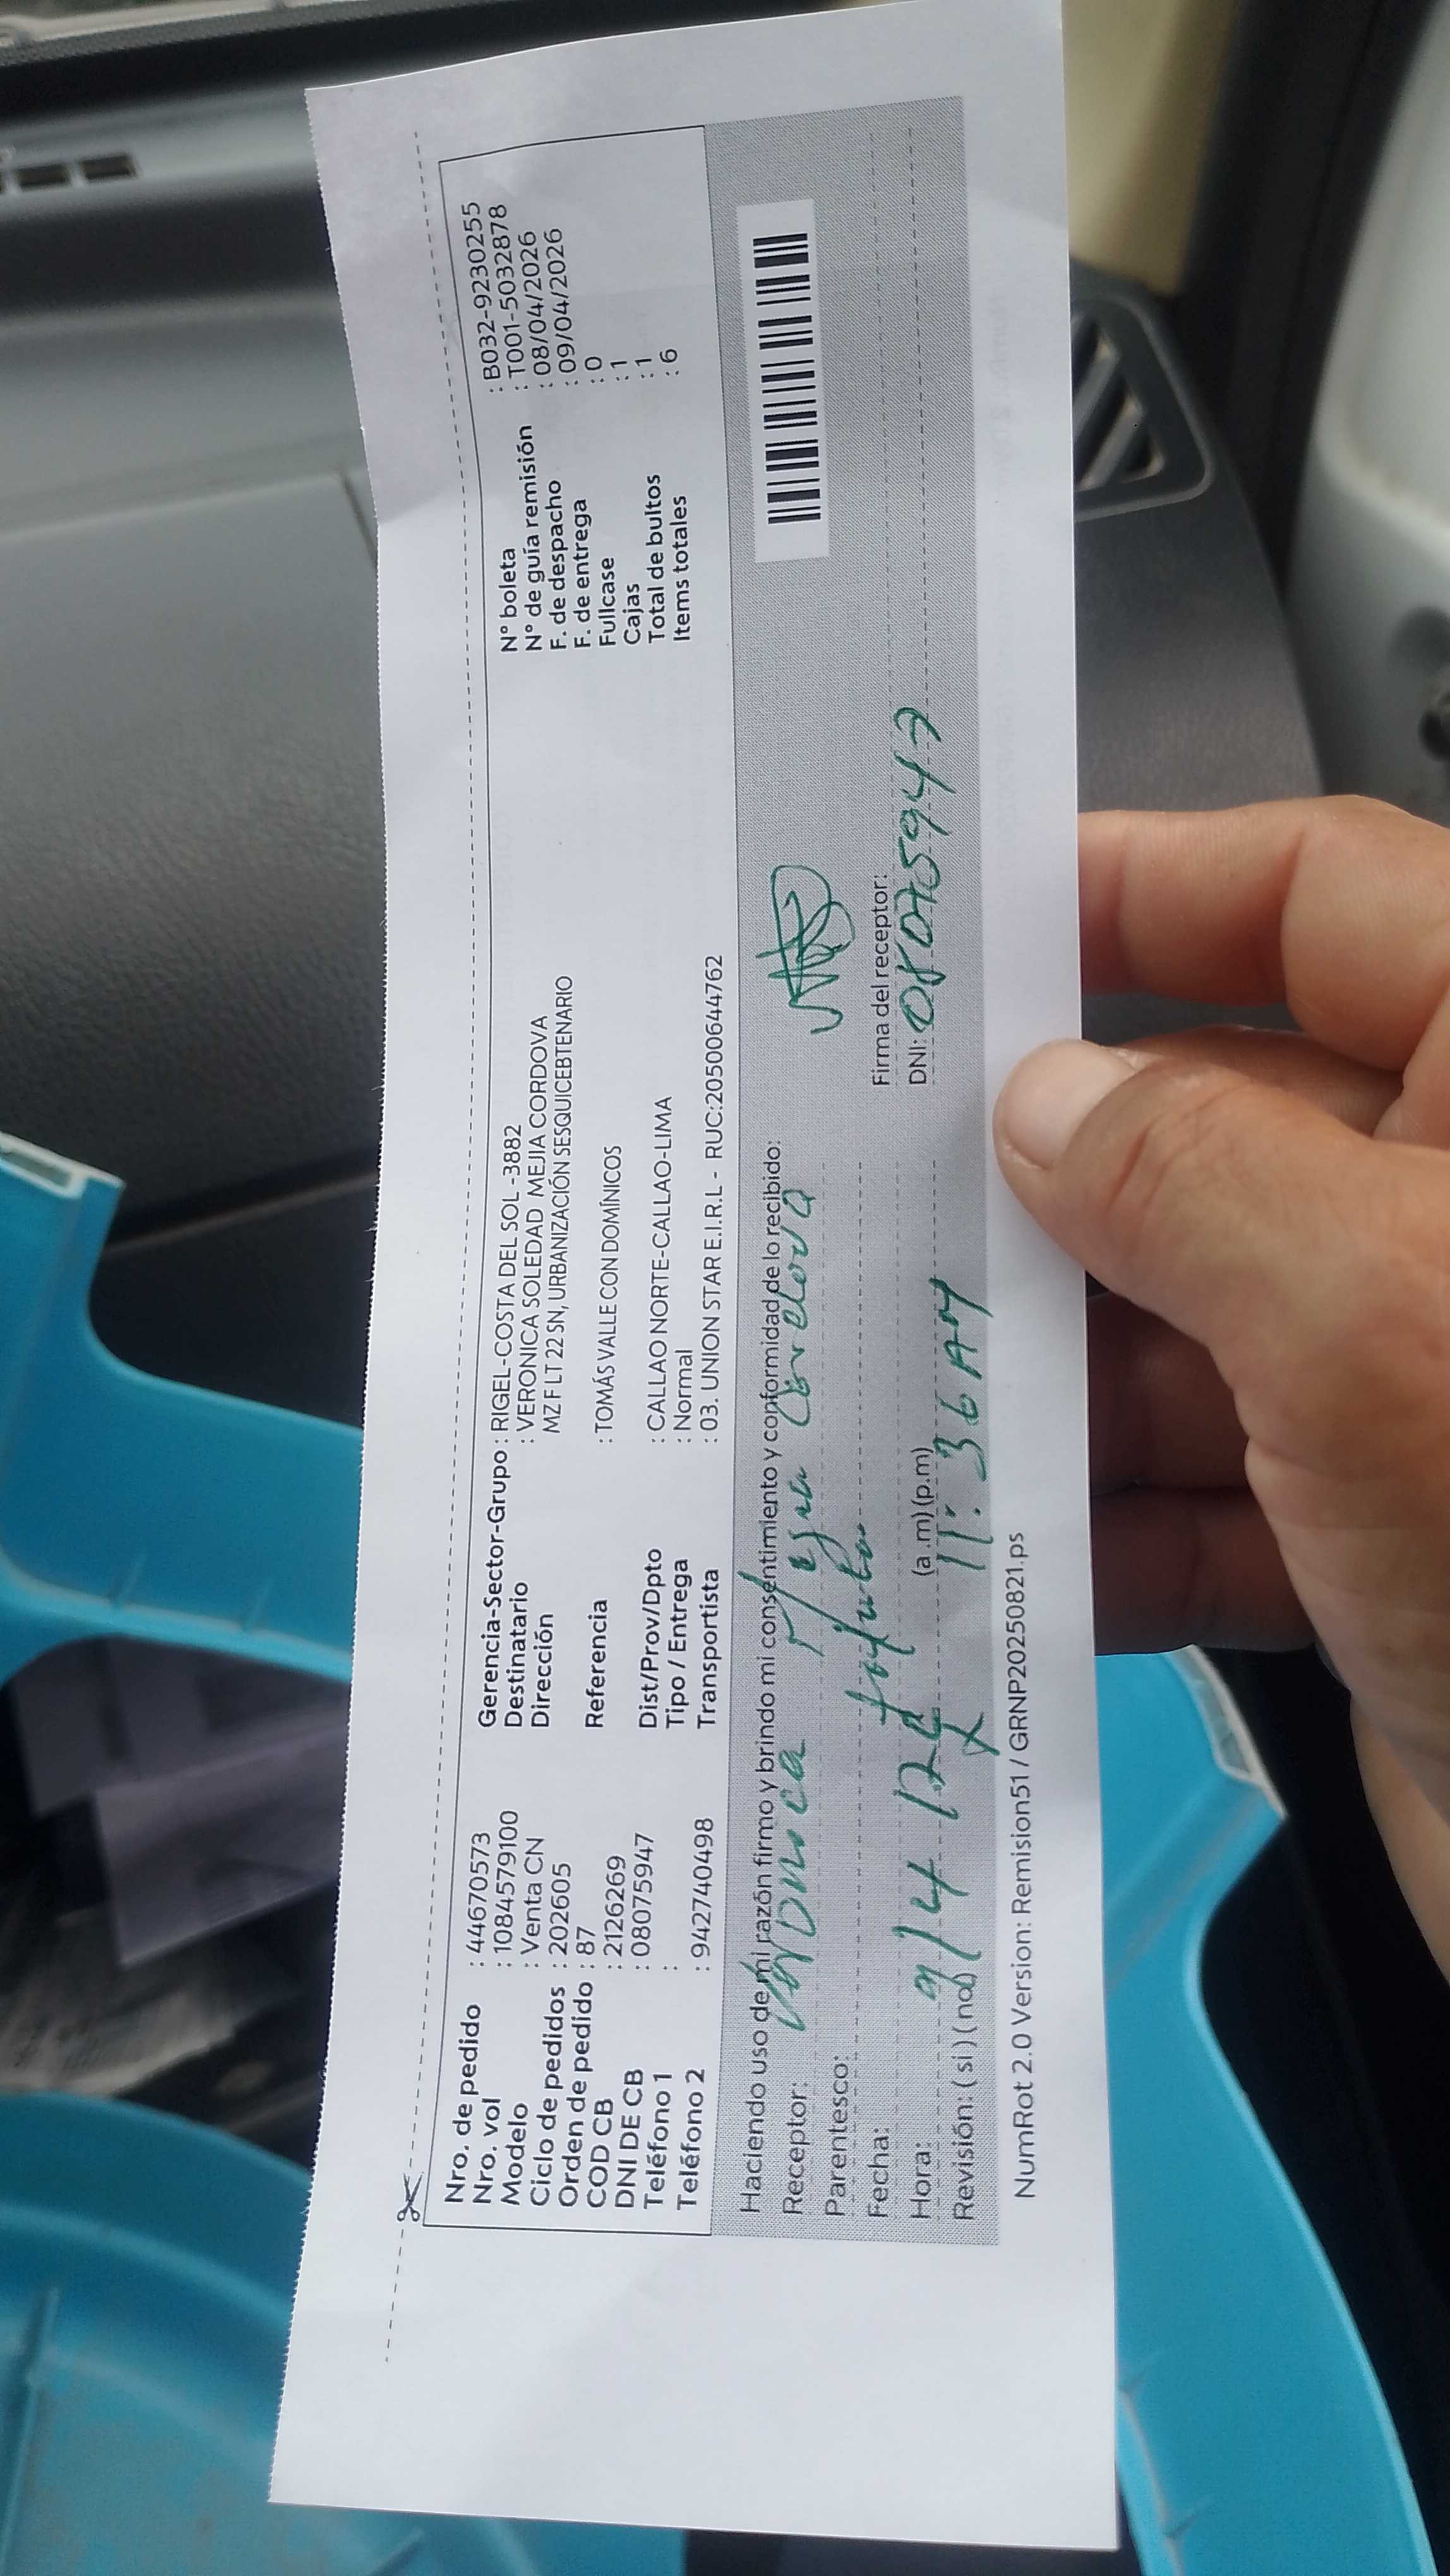 Nro. de pedido : 44670573
Nro. vol : 10844579100
Modelo : Venta CN
Ciclo de pedidos : 202605
Orden de pedido : 87
COD CB : 2126269
DNI DE CB : 08075947
Teléfono 1 :
Teléfono 2 : 942740498
Gerencia-Sector-Grupo : RIGEL-COSTA DEL SOL -3882
Destinatario : VERONICA SOLEDAD MEJIA CORDOVA
Dirección MZ F LT 22 SN, URBANIZACIÓN SESQUICEBTENARIO
Referencia : TOMÁS VALLE CON DOMÍNICOS
Dist/Prov/Dpto : CALLAO NORTE-CALLAO-LIMA
Tipo / Entrega : Normal
Transportista : 03. UNION STAR E.I.R.L - RUC:20500644762
N° boleta : B032-9230255
N° de guía remisión : T001-5032878
F. de despacho : 08/04/2026
F. de entrega : 09/04/2026
Fullcase : 0
Cajas : 1
Total de bultos : 1
Items totales : 6
Haciendo uso de mi razón firmo y brindo mi consentimiento y conformidad de lo recibido:
Receptor: Verónica Mejia Cordova
Parentesco:
Fecha:
Hora: 9/4/26 (a .m) (p.m)
Revisión: ( si ) ( no) 11:36 AM
Firma del receptor:
DNI: 08075947
NumRot 2.0 Version: Remision51 / GRNP20250821.ps